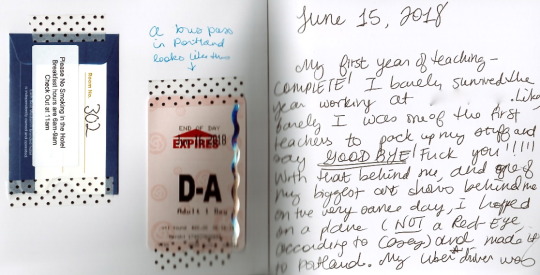 Please No Smoking in the Hotel
Breakfast hours are 6am-9am
Check Out at 11am
Room No.
302
a bus pass
in Portland
looks like this
END OF DAY
EXPIRES
D-A
Adult 1 Day
June 15, 2018
My first year of teaching -
COMPLETE! I barely survived the
year working at . Like,
barely I was one of the first
teachers to pack up my stuff and
say GOODBYE! Fuck you!!!!!
With that behind me, and one of
my biggest art shows behind me
on the very same day, I hopped
on a plane (NOT a Red-Eye
according to Casey) and made it
to Portland. My Uber driver was